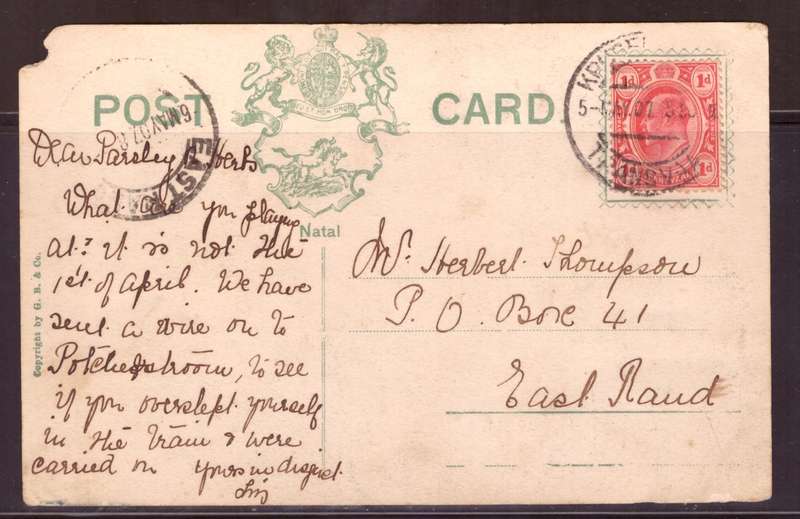 POST CARD
Natal
Copyright by G. B. & Co.
1d 1d
1d
5-MAY.07
TRANSVAAL
6 MAY 07
EAST RA
Dear Parsley & Herbs
What are you playing
at? it is not the
1st of April. We have
sent a wire on to
Potchefstroom, to see
if you overslept yourself
in the train & were
carried on yours in disgust
Mr. Herbert Thompson
P. O. Box 41
East Rand